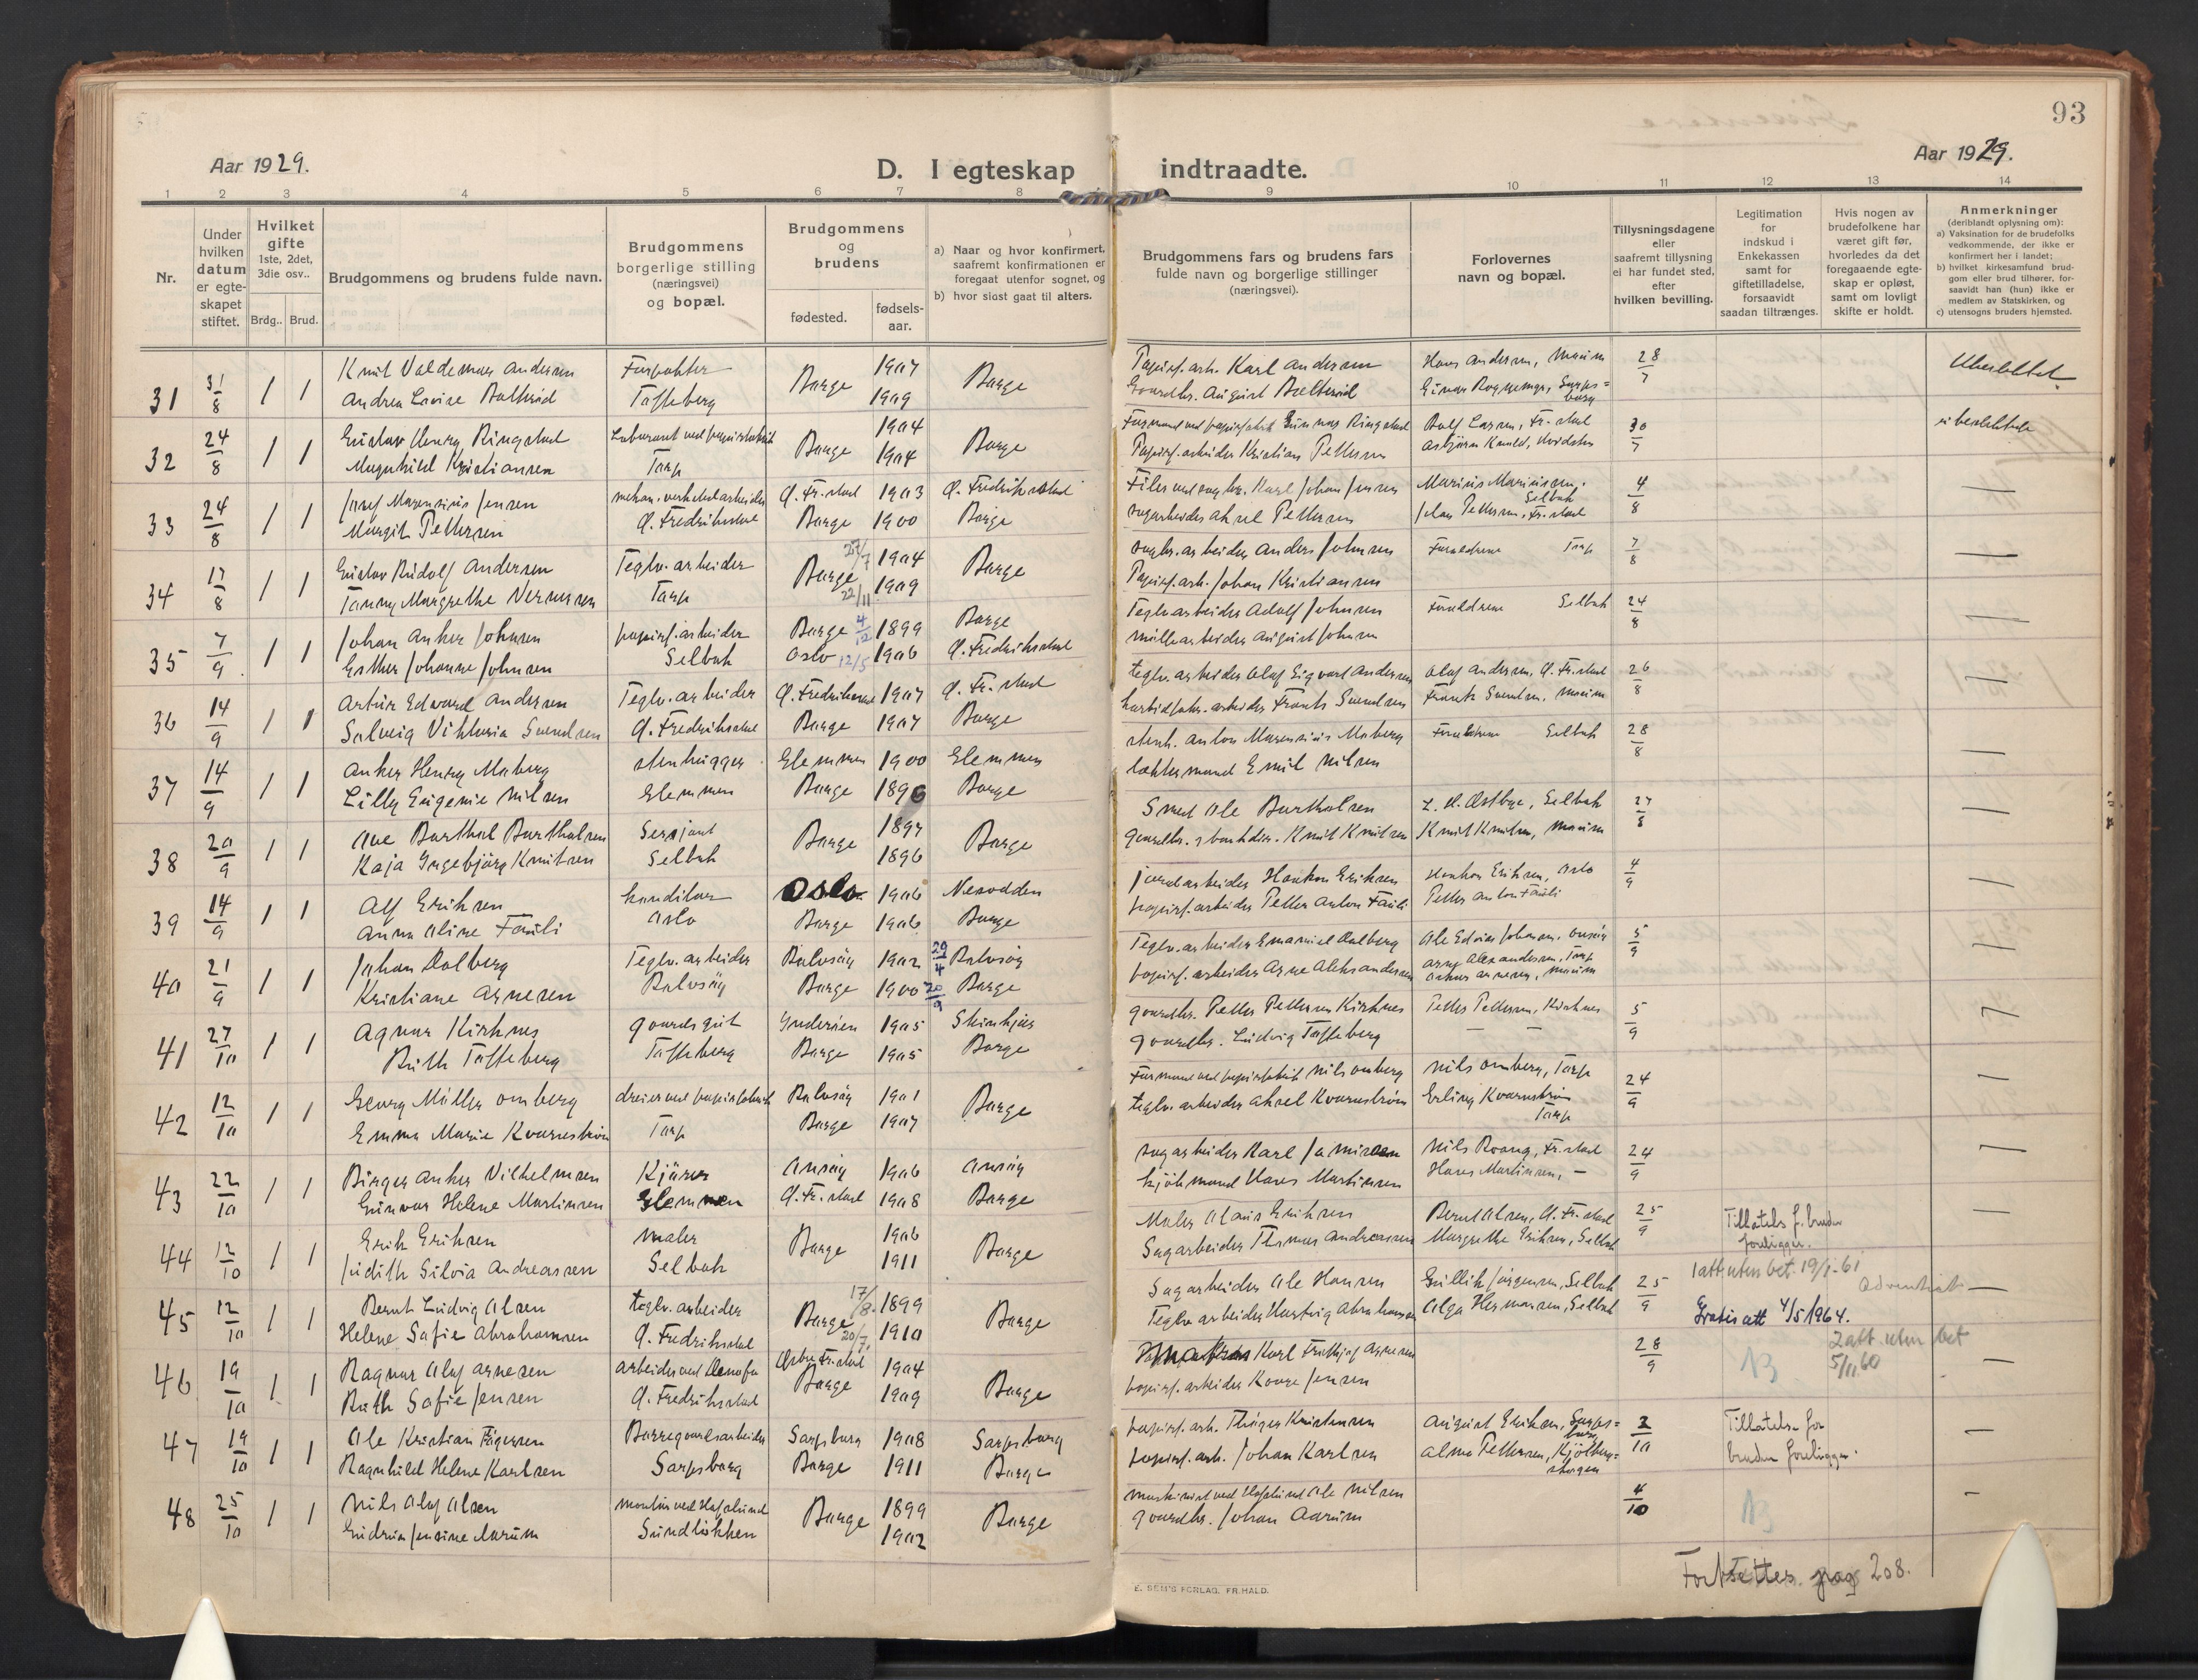 93
Aar 1929.
D. I egteskap indtraadte.
Aar 1929.
1 2 3 4 5 6 7 8 9 10 11 12 13 14
Nr.
Under hvilken datum er egteskapet stiftet.
Hvilket gifte 1ste, 2det, 3die osv..
Brdg.. Brud.
Brudgommens og brudens fulde navn.
Brudgommens borgerlige stilling (næringsvei) og bopæl.
Brudgommens og brudens
fødested.
fødsels-aar.
a) Naar og hvor konfirmert, saafremt konfirmationen er foregaat utenfor sognet, og
b) hvor sidst gaat til alters.
Brudgommens fars og brudens fars fulde navn og borgerlige stillinger (næringsvei).
Forlovernes navn og bopæl.
Tillysningsdagene eller saafremt tillysning ei har fundet sted, efter hvilken bevilling.
Legitimation for indskud i Enkekassen samt for giftetilladelse, forsaavidt saadan tiltrænges.
Hvis nogen av brudefolkene har været gift før, hvorledes da det foregaaende egteskap er opløst, samt om lovligt skifte er holdt.
Anmerkninger (deriblandt oplysning om):
a) Vaksination for de brudefolks vedkommende, der ikke er konfirmert her i landet;
b) hvilket kirkesamfund brudgom eller brud tilhører, forsaavidt han (hun) ikke er medlem av Statskirken, og
c) utensogns bruders hjemsted.
31 31/8 1 1 Knut Valdemar Andersen Forpakter Borge 1907 Borge Papirf.arb. Karl Andersen Hans Andersen, Moum 28/7
Andrea Lovise Botterød Tofteberg 1909 Gaardbr. August Botterød
32 24/8 1 1 Gustav Henry Ringstad Laborant ved papirfabrik Borge 1904 Borge Formand ved papirfabrik Gunnar Ringstad Rolf Larsen, Fr.stad 30/7
Magnhild Kristiansen Torp 1904 Papirf.arbeider Kristian Pettersen
33 24/8 1 1 Josef Marensius Jensen mekan. verkstedarbeider Ø. Fr.stad 1903 Ø. Fredrikstad Filer ved sagbr. Karl Johan Jensen Marius Mariussen, Selbak 4/8
Margit Pettersen Ø. Fredrikstad Borge 1900 Borge sagarbeider Aksel Pettersen Johan Pettersen, Fr.stad
34 17/8 1 1 Gustav Rudolf Andersen Teglv.arbeider Borge 27/7 1904 Borge sagbr.arbeider Anders Johnsen Forældrene Torp 7/8
Fanny Margrethe Vernersen Torp 22/11 1909 Papirf.arb. Johan Kristiansen
35 7/9 1 1 Johan Anker Johnsen papirf.arbeider Borge 4/12 1899 Borge Teglv.arbeider Adolf Johnsen Forældrene Selbak 24/8
Esther Johanne Johnsen Selbak Oslo 12/5 1906 Ø. Fredrikstad møllearbeider August Johnsen
36 14/9 1 1 Artur Edvard Andersen Teglv.arbeider Ø. Fredrikstad 1907 Ø. Fr.stad teglv.arbeider Olaf Sigvard Andersen Olaf Andersen, Ø. Fr.stad 26/8
Solveig Viktoria Svendsen Ø. Fredrikstad Borge 1907 Borge karbidfabr.arbeider Frants Svendsen Frants Svendsen, Moum
37 14/9 1 1 Anker Henry Moberg stenhugger Glemmen 1900 Glemmen stenh. Anton Marensius Moberg Forældrene Selbak 28/8
Lilly Eugenie Nilsen Glemmen Borge 1896 Borge Emil Nilsen
38 20/9 1 1 Ove Barthol Bartholsen Sersjant Borge 1897 Borge Smed Ole Bartholsen Østbye, Selbak 27/8
Kaja Ingebjørg Knutsen Selbak 1896 Knut Knutsen Knut Knutsen, Moum
39 14/9 1 1 Alf Eriksen konditor Oslo 1906 Nesodden jordarbeider Haakon Eriksen Haakon Eriksen, Oslo 4/9
Anna Oline Fauli Oslo Borge 1906 Borge papirf.arbeider Petter Anton Fauli Petter Anton Fauli
40 21/9 1 1 Johan Dalberg Teglv.arbeider Rolvsøy 1902 29/4 Rolvsøy Teglv.arbeider Emanuel Dalberg Ole Edvin Johansen, Onsøy 5/9
Kristiane Arnesen Rolvsøy Borge 1900 20/9 Borge papirf.arbeider Arne Aleksandersen Arne Alexandersen, Torp
Arnesen, Moum
41 27/10 1 1 Agnar Kirknes gaardsgut Inderøen 1905 Steinkjer gaardbr. Petter Pettersen Kirknes Petter Pettersen, Kirknes 5/9
Ruth Tofteberg Tofteberg Borge 1905 Borge gaardbr. Ludvig Tofteberg
42 12/10 1 1 Georg Müller Omberg dreier ved papirfabrik Rolvsøy 1901 Borge Formand ved papirfabrik Nils Omberg Nils Omberg, Torp 24/9
Emma Marie Kvarnstrøm Torp Borge 1907 teglv.arbeider Aksel Kvarnstrøm Erling Kvarnstrøm Torp
43 22/10 1 1 Birger Anker Vilhelmsen Kjører Onsøy 1906 Onsøy sagarbeider Karl Nils Roang, Fr.stad 24/9
Gunvor Helene Martinsen Glemmen Ø. Fr.stad 1908 Borge Hans Martinsen Hans Martinsen, –
44 12/10 1 1 Erik Eriksen maler Borge 1906 Borge Maler Olaus Eriksen Bernt Olsen, Ø. Fr.stad 25/9 Tillatels f. bruden foreligger.
Judith Silvia Andreassen Selbak 1911 Sagarbeider Thomas Andreassen Margrethe Eriksen, Selbak
1 att. uten bet. 19/1-61
45 12/10 1 1 Bernt Ludvig Olsen teglv.arbeider Borge 17/8 1899 Borge Sagarbeider Ole Hansen Gullik Jørgensen, Selbak 25/9 Adventist
Helene Sofie Abrahamsen Ø. Fredrikstad 20/7 1910 Teglv.arbeider Hartvig Abrahamsen Olga Hermansen, Selbak Gratis att 4/5 1964.
46 19/10 1 1 Ragnar Olaf Arnesen arbeider ved Denofa Østre Fr.stad 1904 Karl Fridtjof Arnesen 28/9 2 att. uten bet 5/11 60
Ruth Sofie Jensen Ø. Fredrikstad Borge 1909 Borge papirf.arbeider Kaare Jensen
47 19/10 1 1 Ole Kristian Borregaardsarbeider Sarpsborg 1908 Sarpsborg papirf.arb. August Eriksen, Sarpsborg 2/10 Tillatelse for bruden foreligger.
Ragnhild Helene Karlsen Sarpsborg Borge 1911 Borge papirf.arb. Johan Karlsen Alma Pettersen, Kjølbergskogen
48 25/10 1 1 Nils Olaf Olsen montør ved Hafslund Borge 1899 Borge maskinist ved Hafslund Ole Nilsen 4/10
Gudrun Jensine Aarum Sundløkken 1902 gaardbr. Johan Aarum
Fortsettes pag 208.
E. SEM'S FORLAG. FR.HALD.